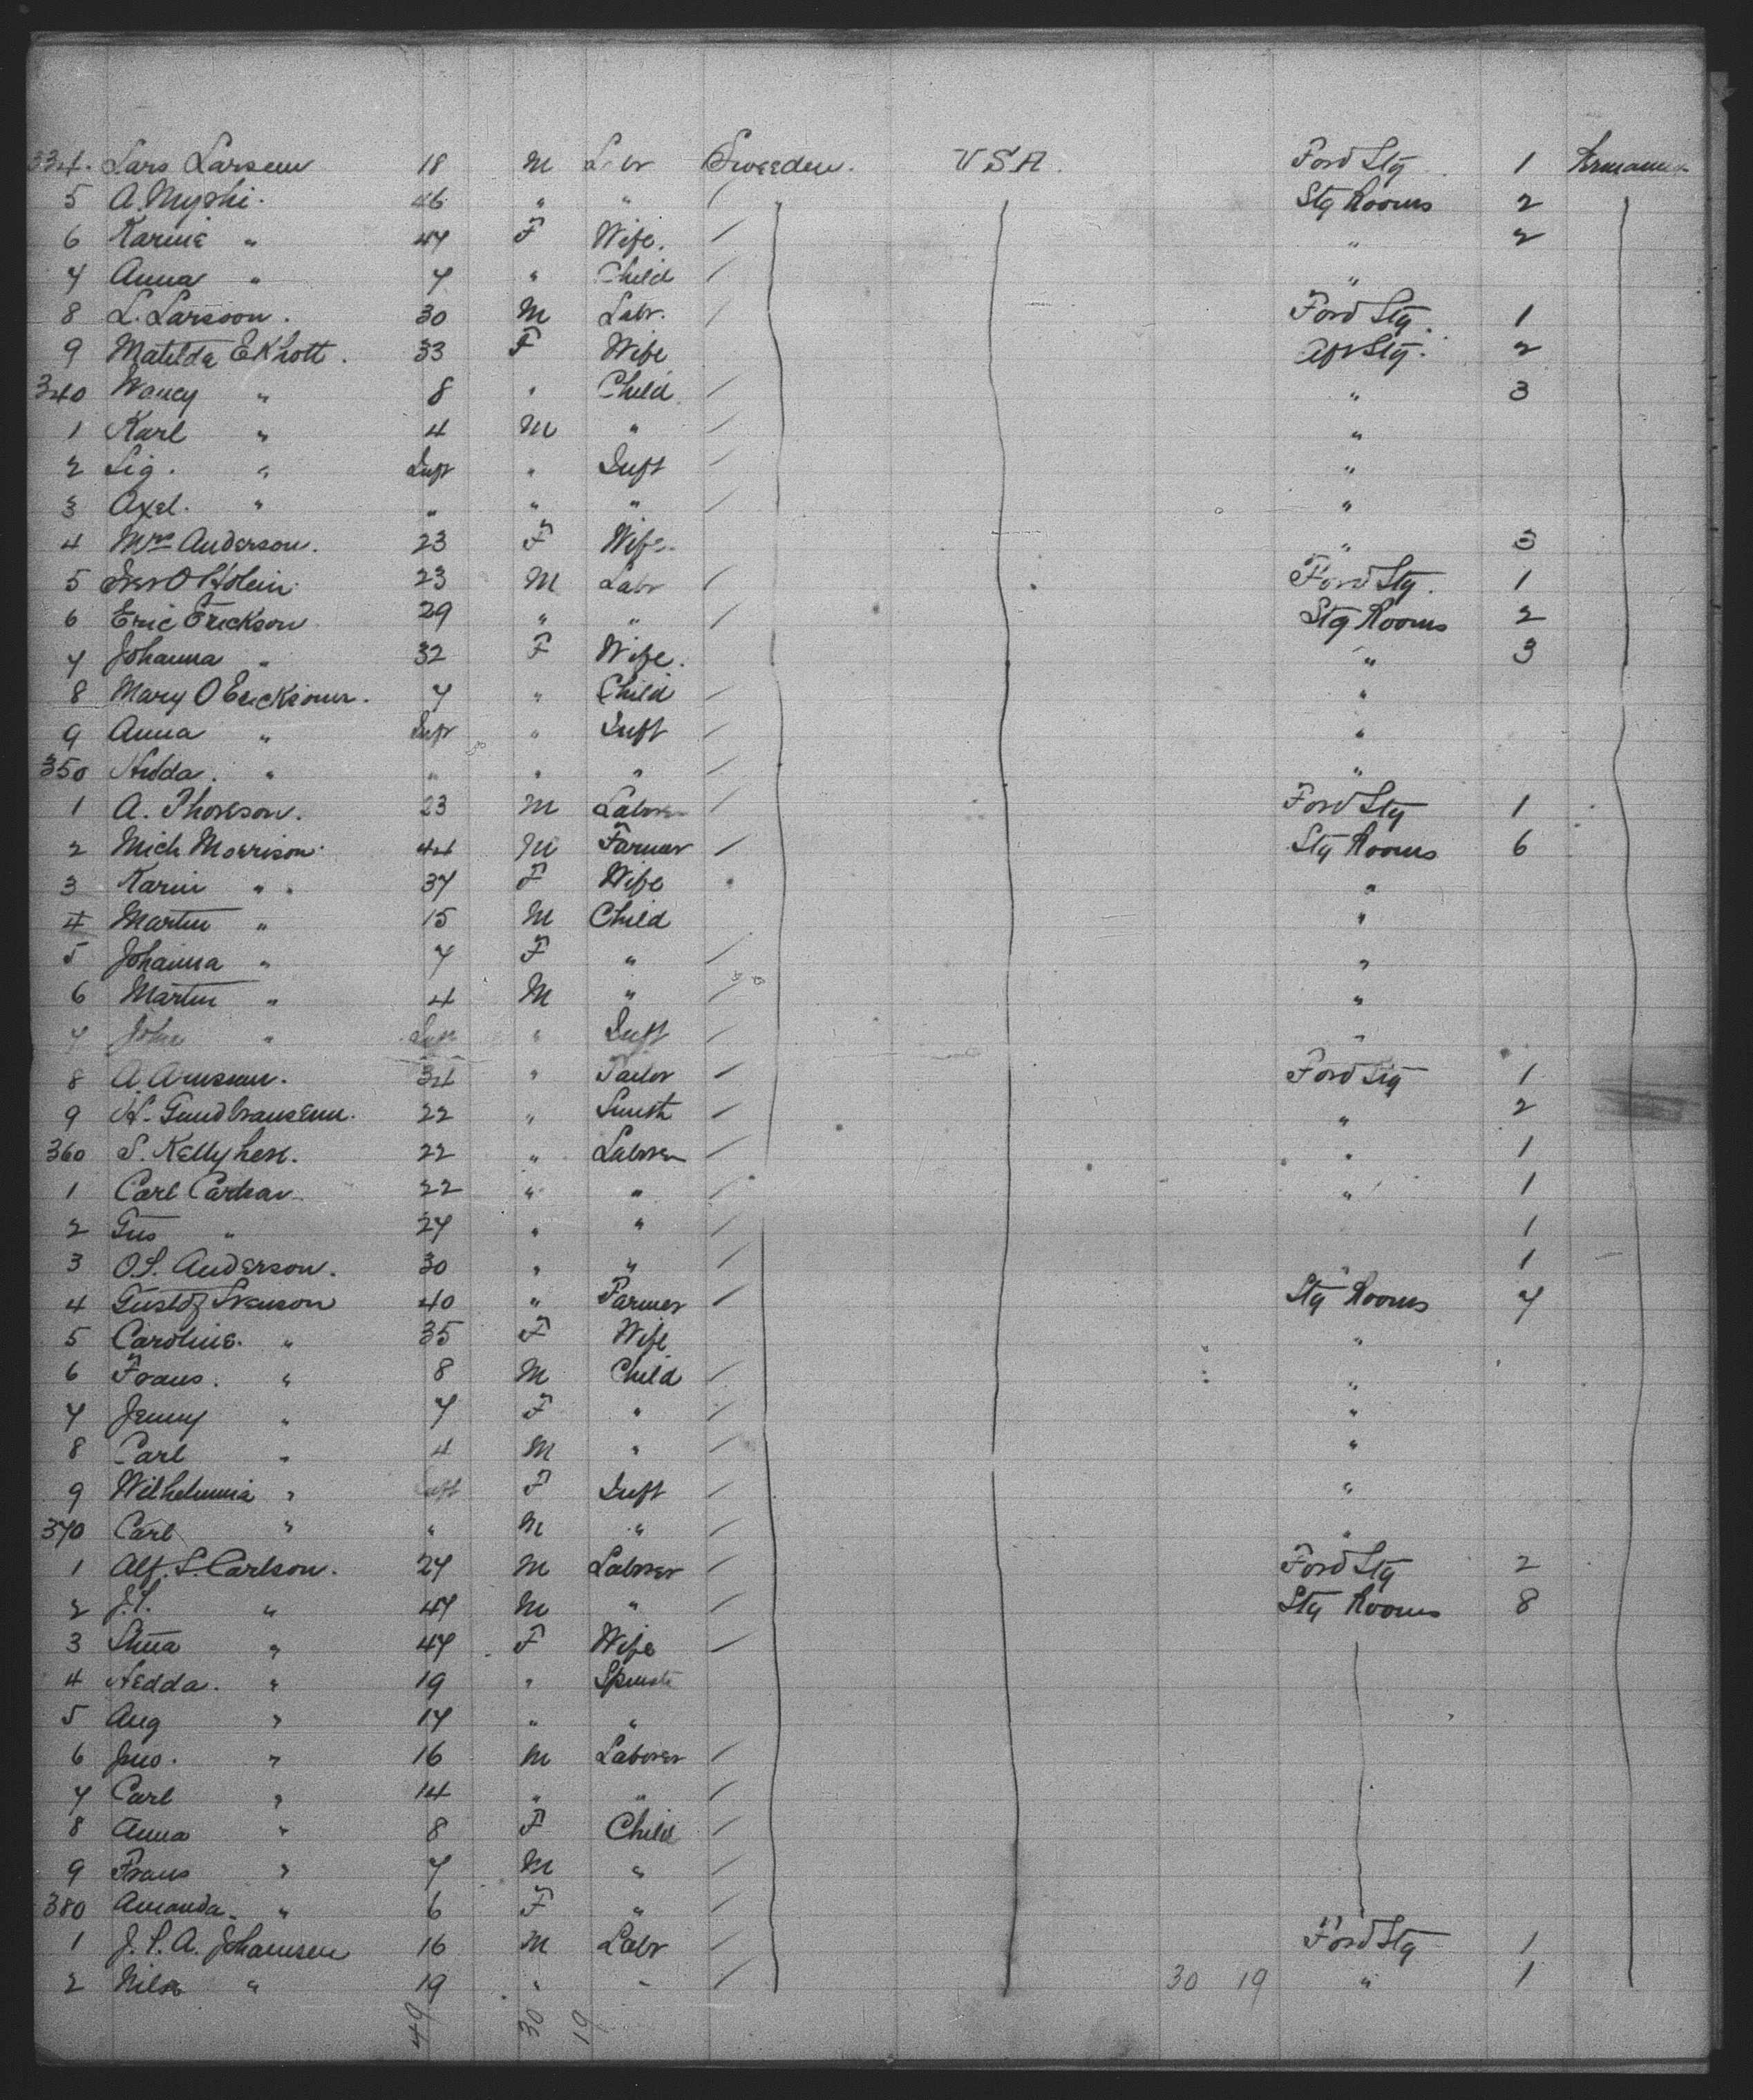 334. Lars Larsenn 18 M Labr Sweeden. U S A. Ford Stg 1
5 A. Nyphi. 46 " " Stg Rooms 2
6 Karine " 47 F Wife. " 2
7 Anna " 7 " Child "
8 L. Larsoon. 30 M Labr. Ford Stg. 1
9 Matilda Ekhott. 33 F Wife Aft Stg. 2
340 Nancy " 8 " Child " 3
1 Karl " 4 M " "
2 Sig. " Inft " Inft "
3 Axel. " " " " "
4 Mrs Anderson. 23 F Wife " 3
5 O Holein 23 M Labr Ford Stg. 1
6 Eric Erickson 29 " " Stg Rooms 2
7 Johanna " 32 F Wife. " 3
8 Mary O Ericksonn. 7 " Child "
9 Anna " Inft " Inft "
350 Hedda. " " " " "
1 A. Thoreson. 23 M Laborer Ford Stg 1
2 Mich Morrison 44 M Farmer Stg Rooms 6
3 Karin " 37 F Wife "
4 Martin " 15 M Child "
5 Johanna " 7 F " "
6 Martin " 4 M " "
7 John " Inft " Inft "
8 A. Arnsenn. 34 " Tailor Ford Stg 1
9 H. Gundbransenn. 22 " Smith " 2
360 S. Kellyhen. 22 " Laborer " 1
1 Carl 22 " " " 1
2 Gus " 27 " " 1
3 O.S. Anderson. 30 " " " 1
4 Svenson 40 " Farmer Stg Rooms 7
5 Caroline. " 35 F Wife "
6 Frans. " 8 M Child "
7 Jenny " 7 F " "
8 Carl " 4 M " "
9 Wilhelmina " Inft F Inft "
370 Carl " " M " "
1 Alf. S. Carlson. 27 M Laborer Ford Stg 2
2 J.S. " 47 M " Stg Rooms 8
3 Stina " 47 F Wife
4 Hedda. " 19 " Spinst
5 Aug " 17 " "
6 Jno. " 16 M Laborer
7 Carl " 14 " "
8 Anna " 8 F Child
9 Frans " 7 M "
380 Amanda. " 6 F "
1 J. S. A. Johansen 16 M Labr Ford Stg 1
2 Nils " 19 " " 30 19 " 1
49 30 19